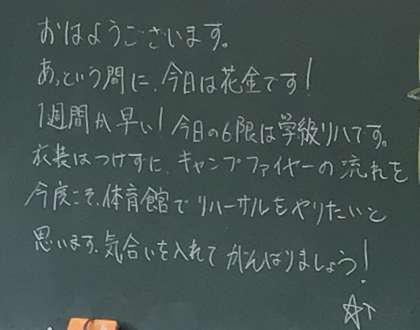 おはようございます。
あっという間に、今日は花金です!
1週間が早い! 今日の6限は学級リハです。
衣装はつけずに、キャンプファイヤーの流れを
今度こそ、体育館でリハーサルをやりたいと
思います。気合いを入れてがんばりましょう!